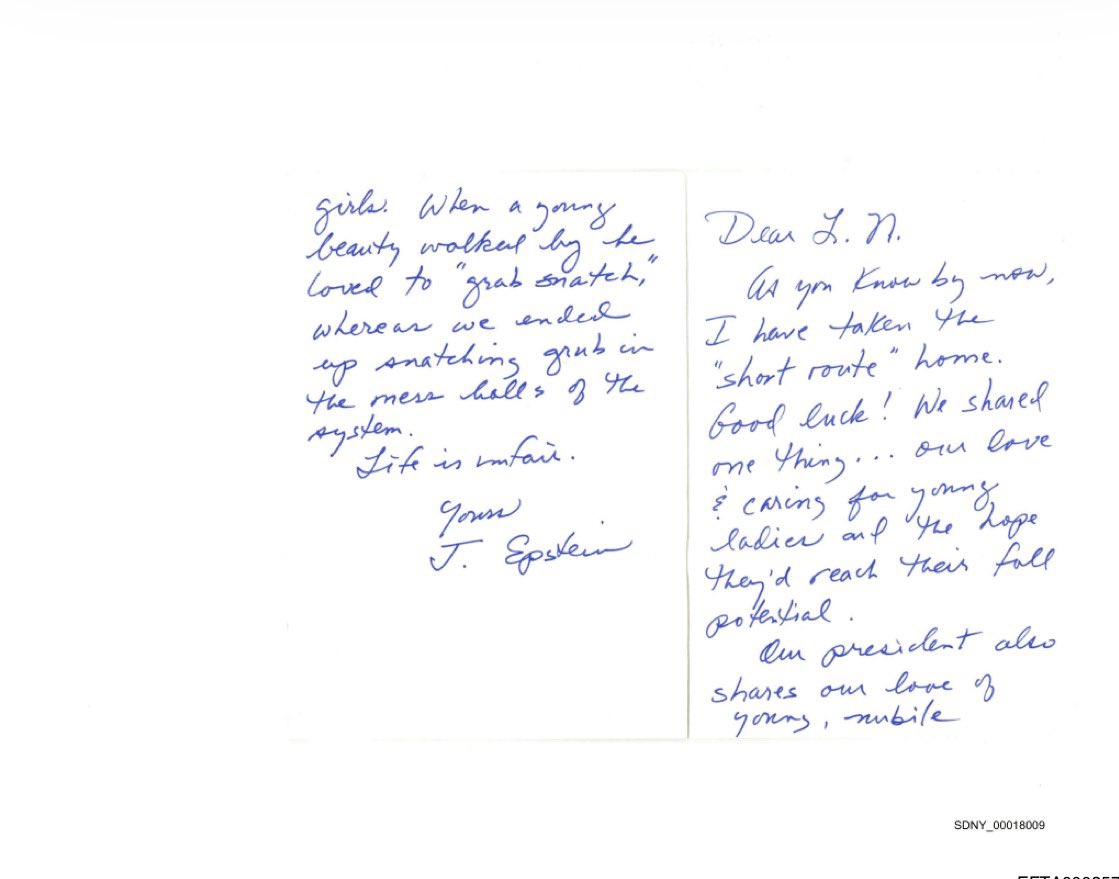 Dear L. N.
As you know by now,
I have taken the
"short route" home.
Good luck! We shared
one thing... our love
& caring for young
ladies and the hope
they'd reach their full
potential.
Our president also
shares our love of
young, nubile
girls. When a young
beauty walked by he
loved to "grab snatch,"
whereas we ended
up snatching grub in
the mess halls of the
system.
Life is unfair.
Yours
J. Epstein
SDNY_00018009